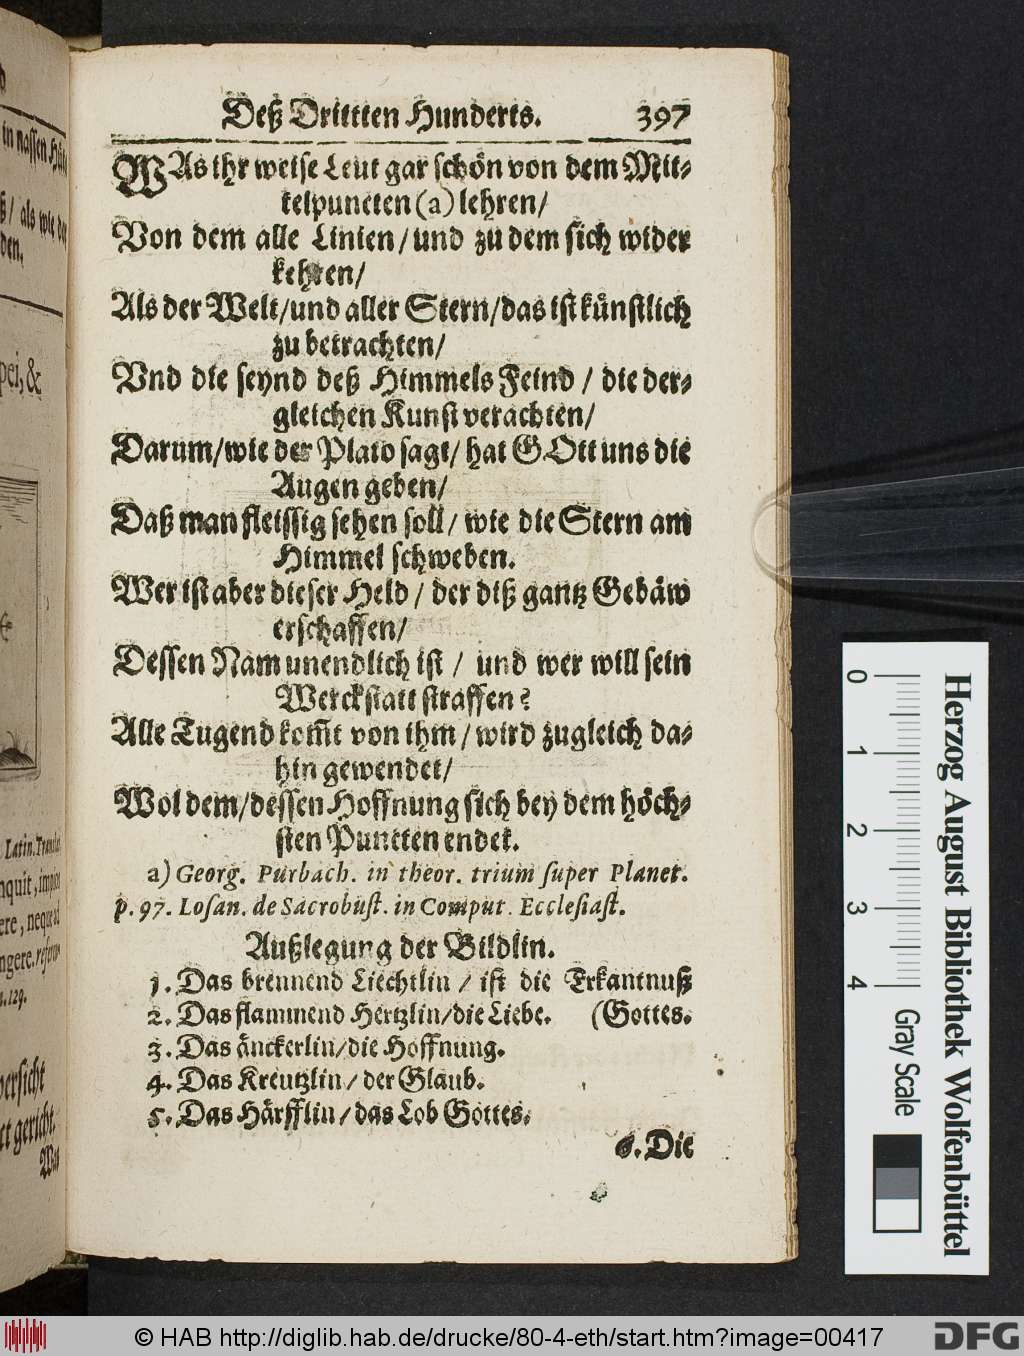 Deß Drittten Hunderts. 397
WAs ihr weise Leut gar schön von dem Mit-
telpuncten (a) lehren/
Von dem alle Linien / und zu dem sich wider
kehren/
Als der Welt/und aller Stern/das ist künstlich
zu betrachten/
Vnd die seynd deß Himmels Feind / die der-
gleichen Kunst verachten/
Darum/wie der Plato sagt/ hat GOtt uns die
Augen geben/
Daß man fleissig sehen soll / wie die Stern am
Himmel schweben.
Wer ist aber dieser Held / der diß gantz Gebäw
erschaffen/
Dessen Nam unendlich ist / und wer will sein
Werckstatt straffen?
Alle Tugend kom̃t von ihm / wird zugleich da-
hin gewendet/
Wol dem/dessen Hoffnung sich bey dem höch-
sten Puncten endet.
a) Georg. Purbach. in theor. trium super Planet.
p. 97. Losan. de Sacrobust. in Comput. Ecclesiast.
Außlegung der Bildlin.
1. Das brennend Liechtlin / ist die Erkantnuß
2. Das flammend Hertzlin/die Liebe. (Gottes.
3. Das änckerlin/die Hoffnung.
4. Das Kreutzlin / der Glaub.
5. Das Härfflin / das Lob Gottes.
6. Die
in nassen
als wie
den.
pei, &
Latin.
nquit,
ere, neque
ngere.
129.
gericht.
0 1 2 3 4
Herzog August Bibliothek Wolfenbüttel
Gray Scale
© HAB http://diglib.hab.de/drucke/80-4-eth/start.htm?image=00417
DFG